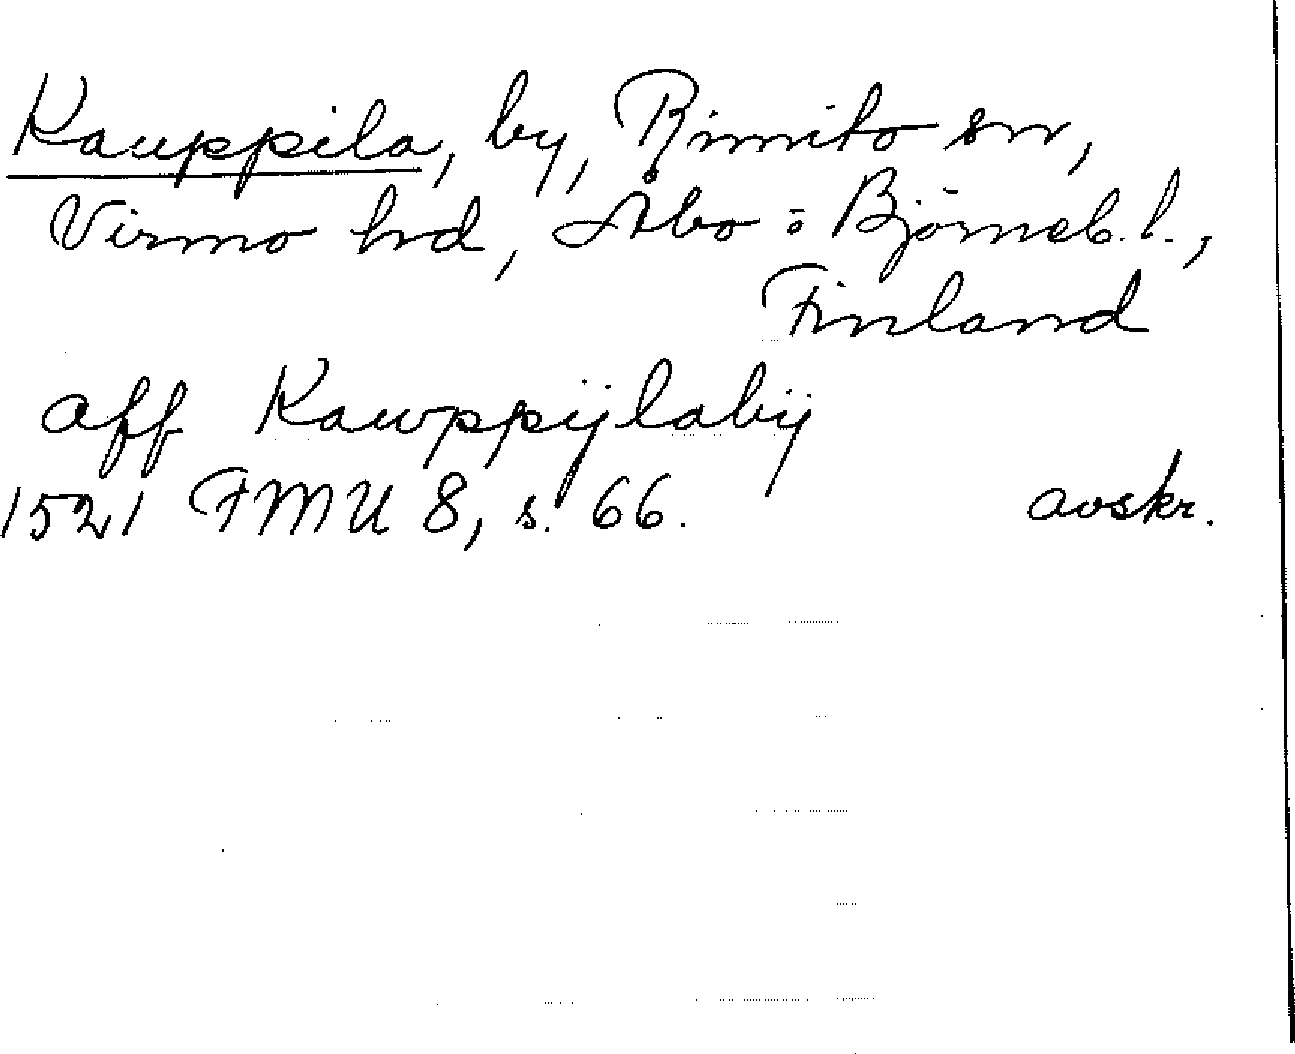 Kauppila, by, Rimito sn,
Virmo hd, Åbo o Björneb. l.,
Finland
aff Kawppijlabij
1521 FMU 8, s. 66. avskr.